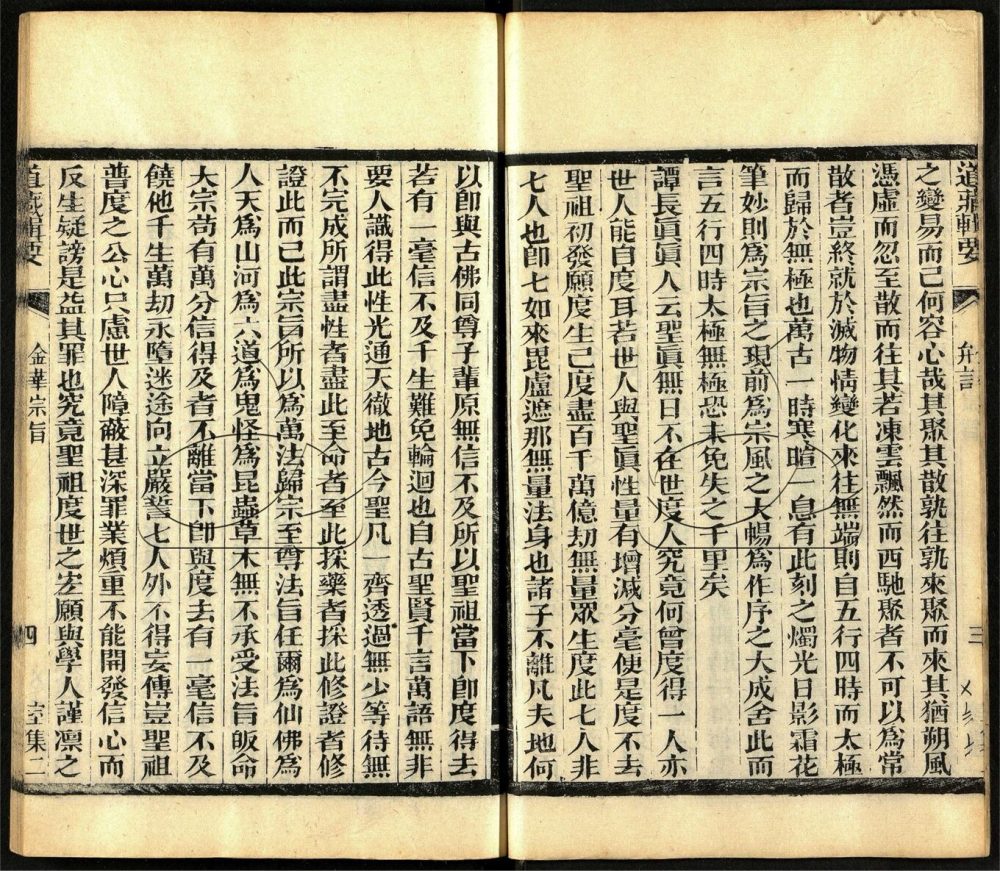 道藏輯要
弁言
三
之變易而已何容心哉其聚其散孰往孰來聚而來其猶朔風
憑虛而忽至散而往其若凍雲飄然而西馳聚者不可以為常
散者豈終就於滅物情變化來往無端則自五行四時而太極
而歸於無極也萬古一時寒暄一息有此刻之燭光日影霜花
筆妙則為宗旨之現前為宗風之大暢為作序之大成舍此而
言五行四時太極無極恐未免失之千里矣
譚長眞眞人云聖眞無日不在世度人究竟何曾度得一人亦
世人能自度耳若世人與聖眞性量有增減分毫便是度不去
聖祖初發願度生已度盡百千萬億劫無量眾生度此七人非
七人也卽七如來毘盧遮那無量法身也諸子不離凡夫地何
以卽與古佛同尊子輩原無信不及所以聖祖當下卽度得去
若有一毫信不及千生難免輪迴也自古聖賢千言萬語無非
要人識得此性光通天徹地古今聖凡一齊透過無少等待無
不完成所謂盡性者盡此至命者至此採藥者採此修證者修
證此而已此宗旨所以為萬法歸宗至尊法旨任爾為仙佛為
人天為山河為六道為鬼怪為昆蟲草木無不承受法旨皈命
大宗苟有萬分信得及者不離當下卽與度去有一毫信不及
饒他千生萬劫永障迷途向立嚴誓七人外不得妄傳豈聖祖
普度之公心只慮世人障蔽甚深罪業煩重不能開發信心而
反生疑謗是益其罪也究竟聖祖度世之宏願與學人謹凜之
道藏輯要
金華宗旨
四
集二